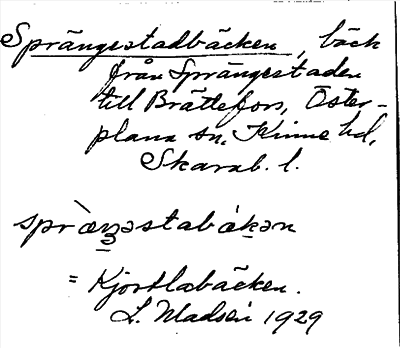 Sprängestadbäcken, bäck
från Sprängestaden
till Brättefors, Öster-
plana sn, Kinne hd,
Skarab. l.
= Kjortlabäcken.
L. Madsén 1929